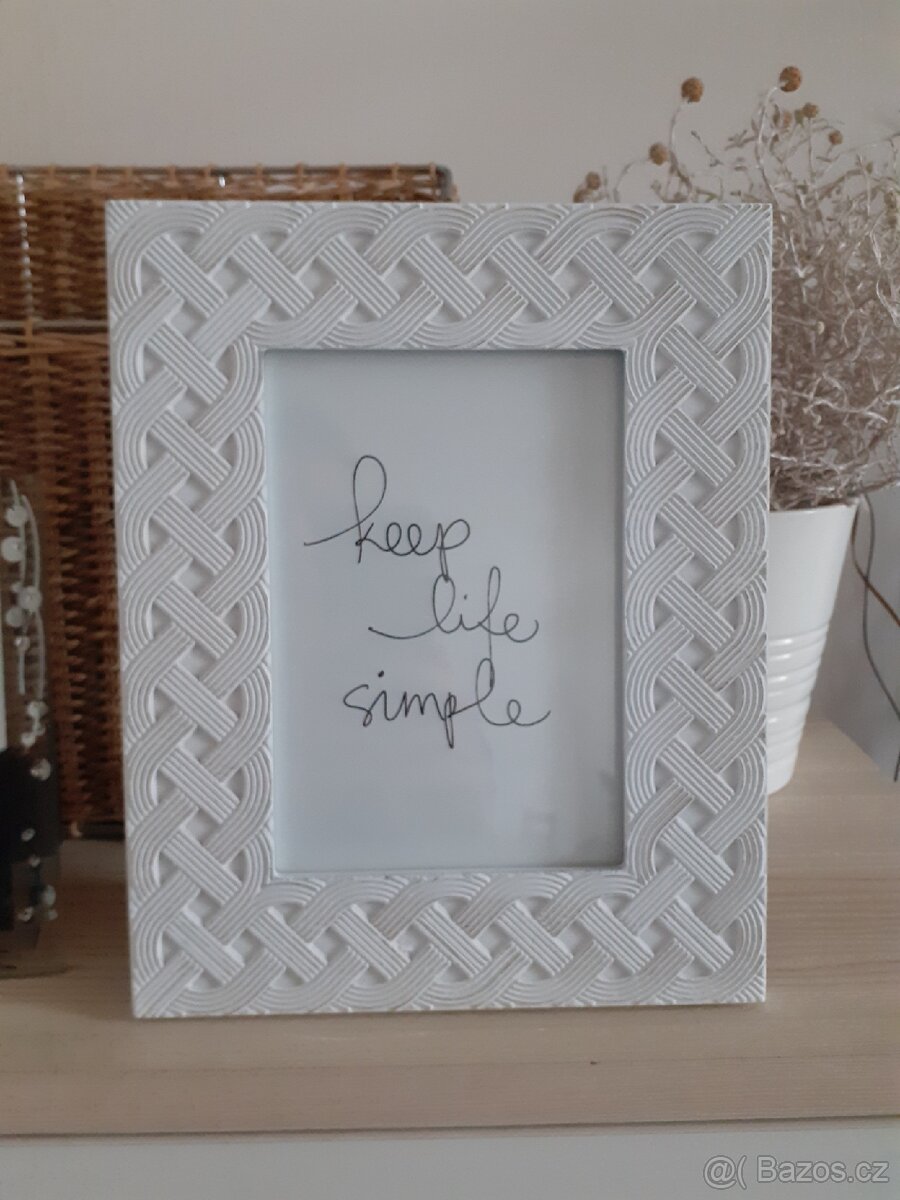 keep
life
simple
@( Bazos.cz